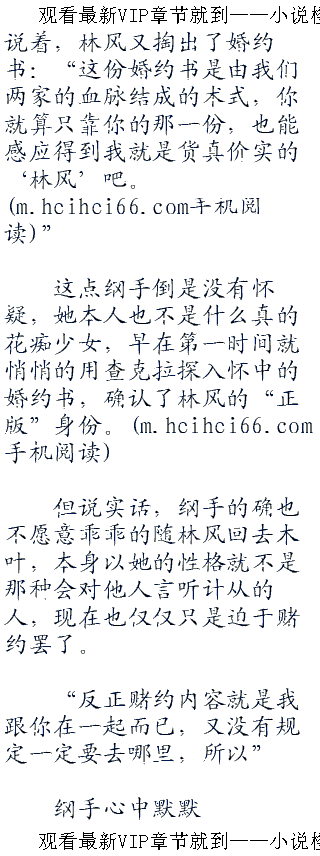 观看最新VIP章节就到——小说检
说着，林风又掏出了婚约
书：“这份婚约书是由我们
两家的血脉结成的术式，你
就算只靠你的那一份，也能
感应得到我就是货真价实的
‘林风’吧。
(m.hcihci66.com手机阅
读)”
这点纲手倒是没有怀
疑，她本人也不是什么真的
花痴少女，早在第一时间就
悄悄的用查克拉探入怀中的
婚约书，确认了林风的“正
版”身份。(m.hcihci66.com
手机阅读)
但说实话，纲手的确也
不愿意乖乖的随林风回去木
叶，本身以她的性格就不是
那种会对他人言听计从的
人，现在也仅仅只是迫于赌
约罢了。
“反正赌约内容就是我
跟你在一起而已，又没有规
定一定要去哪里，所以”
纲手心中默默
观看最新VIP章节就到——小说